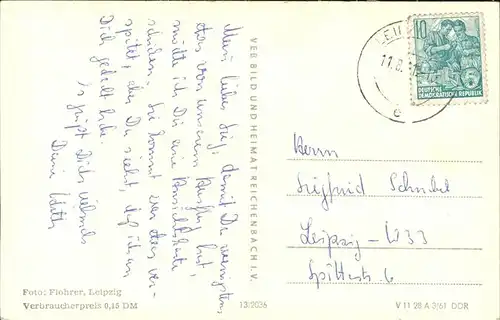 Mein lieber Sieg, damit Du wenigstens
etwas von unserem Ausflug hast,
möchte ich Dir eine Ansichtskarte
schicken. Sie kommt zwar etwas ver-
spätet, aber Du siehst, daß ich an
Dich gedacht habe.
Es grüßt Dich vielmals
Deine
VEB BILD UND HEIMAT REICHENBACH I. V.
10
DEUTSCHE
DEMOKRATISCHE REPUBLIK
11.8.
e
Herrn
Siegfried
Leipzig - W33
6
Foto: Flohrer, Leipzig
Verbraucherpreis 0,15 DM
13/2036
V 11 28 A 3/61 DDR